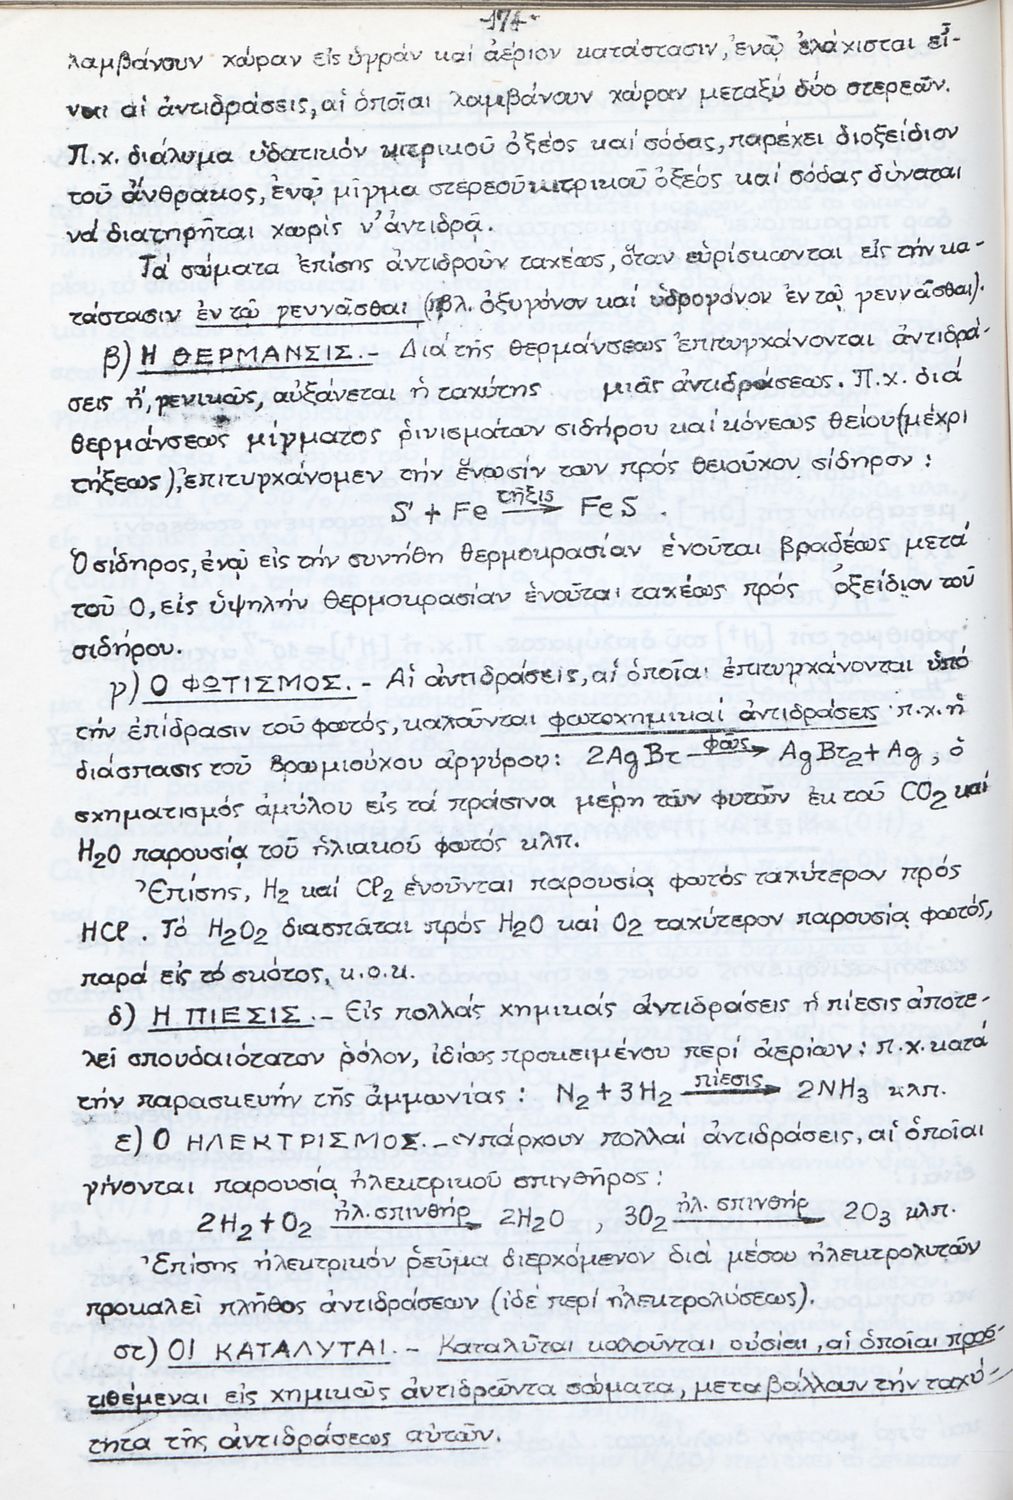 -174-
λαμβάνουν χώραν εἰς ὑγράν καί ἀέριον κατάστασιν, ἐνῷ ἐλάχισται εἶ-
ναι αἱ ἀντιδράσεις, αἱ ὁποῖαι λαμβάνουν χώραν μεταξύ δύο στερεῶν.
Π.χ. διάλυμα ὑδατικόν κιτρικοῦ ὀξέος καί σόδας, παρέχει διοξείδιον
τοῦ ἄνθρακος, ἐνῷ μῖγμα στερεοῦ κιτρικοῦ ὀξέος καί σόδας δύναται
νά διατηρῆται χωρίς ν' ἀντιδρᾷ.
Τά σώματα ἐπίσης ἀντιδροῦν ταχέως, ὅταν εὑρίσκωνται εἰς τήν κα-
τάστασιν ἐν τῷ γεννᾶσθαι (πβλ. ὀξυγόνον καί ὑδρογόνον ἐν τῷ γεννᾶσθαι).
β) Η ΘΕΡΜΑΝΣΙΣ.- Διά τῆς θερμάνσεως ἐπιτυγχάνονται ἀντιδρά-
σεις ἤ, γενικῶς, αὐξάνεται ἡ ταχύτης μιᾶς ἀντιδράσεως. Π.χ. διά
θερμάνσεως μίγματος ρινισμάτων σιδήρου καί κόνεως θείου (μέχρι
τήξεως), ἐπιτυγχάνομεν τήν ἕνωσίν των πρός θειοῦχον σίδηρον:
S + Fe —τῆξις→ FeS.
Ὁ σίδηρος, ἐνῷ εἰς τήν συνήθη θερμοκρασίαν ἑνοῦται βραδέως μετά
τοῦ Ο, εἰς ὑψηλήν θερμοκρασίαν ἑνοῦται ταχέως πρός ὀξείδιον τοῦ
σιδήρου.
γ) Ο ΦΩΤΙΣΜΟΣ.- Αἱ ἀντιδράσεις, αἱ ὁποῖαι ἐπιτυγχάνονται ὑπό
τήν ἐπίδρασιν τοῦ φωτός, καλοῦνται φωτοχημικαί ἀντιδράσεις π.χ. ἡ
διάσπασις τοῦ βρωμιούχου ἀργύρου: 2AgBr —φῶς→ AgBr2 + Ag, ὁ
σχηματισμός ἀμύλου εἰς τά πράσινα μέρη τῶν φυτῶν ἐκ τοῦ CO2 καί
H2O παρουσίᾳ τοῦ ἡλιακοῦ φωτός κλπ.
Ἐπίσης, H2 καί Cl2 ἑνοῦνται παρουσίᾳ φωτός ταχύτερον πρός
HCl. Τό H2O2 διασπᾶται πρός H2O καί O2 ταχύτερον παρουσίᾳ φωτός,
παρά εἰς τό σκότος, κ.ο.κ.
δ) Η ΠΙΕΣΙΣ.- Εἰς πολλάς χημικάς ἀντιδράσεις ἡ πίεσις ἀποτε-
λεῖ σπουδαιότατον ρόλον, ἰδίως προκειμένου περί ἀερίων: π.χ. κατά
τήν παρασκευήν τῆς ἀμμωνίας: N2 + 3H2 —πίεσις→ 2NH3 κλπ.
ε) Ο ΗΛΕΚΤΡΙΣΜΟΣ.- ὑπάρχουν πολλαί ἀντιδράσεις, αἱ ὁποῖαι
γίνονται παρουσίᾳ ἠλεκτρικοῦ σπινθῆρος:
2H2 + O2 —ἠλ. σπινθήρ→ 2H2O, 3O2 —ἠλ. σπινθήρ→ 2O3 κλπ.
Ἐπίσης ἠλεκτρικόν ρεῦμα διερχόμενον διά μέσου ἠλεκτρολυτῶν
προκαλεῖ πλῆθος ἀντιδράσεων (ἰδέ περί ἠλεκτρολύσεως).
στ) ΟΙ ΚΑΤΑΛΥΤΑΙ.- Καταλῦται καλοῦνται οὐσίαι, αἱ ὁποῖαι προσ-
τιθέμεναι εἰς χημικῶς ἀντιδρῶντα σώματα, μεταβάλλουν τήν ταχύ-
τητα τῆς ἀντιδράσεως αὐτῶν.